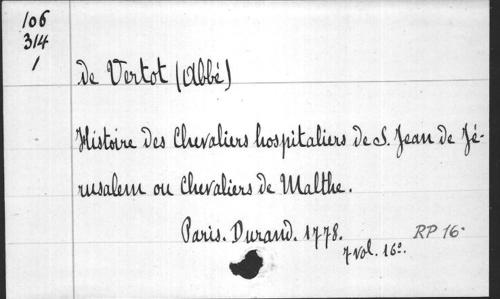 106
314
1
de Vertot (Abbé)
Histoire des Chevaliers hospitaliers de S. Jean de Jé-
rusalem ou Chevaliers de Malthe.
Paris. Durand. 1778.
7 vol. 16º. RP 16.